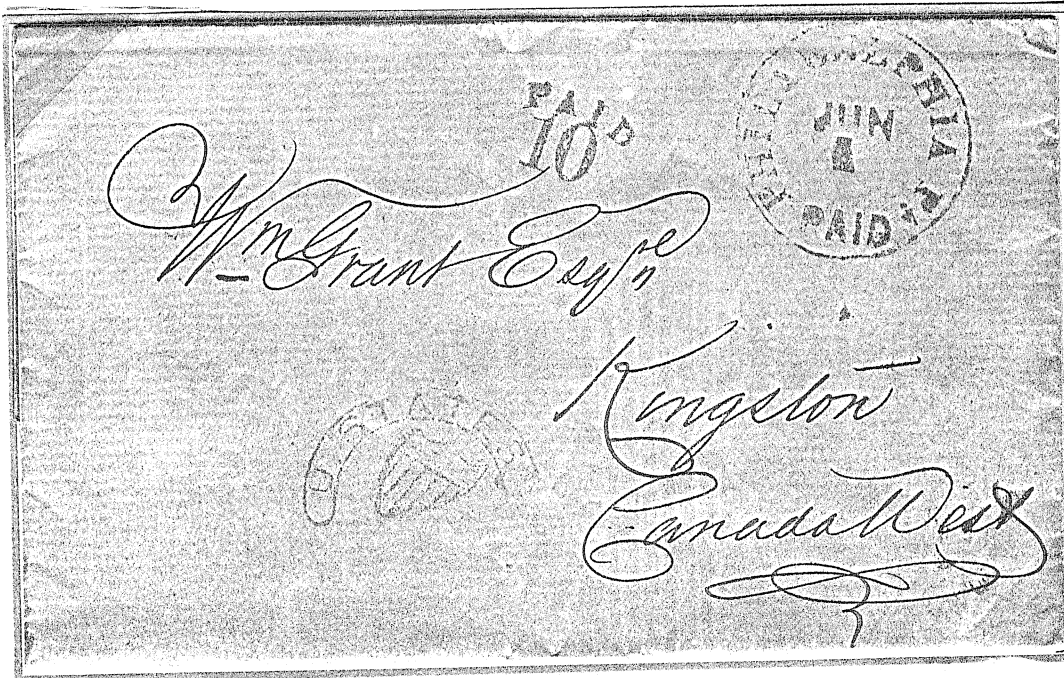 PAID
10
PHILADELPHIA PA
JUN
PAID
Wm Grant Esqre
Kingston
Canada West
U. STATES